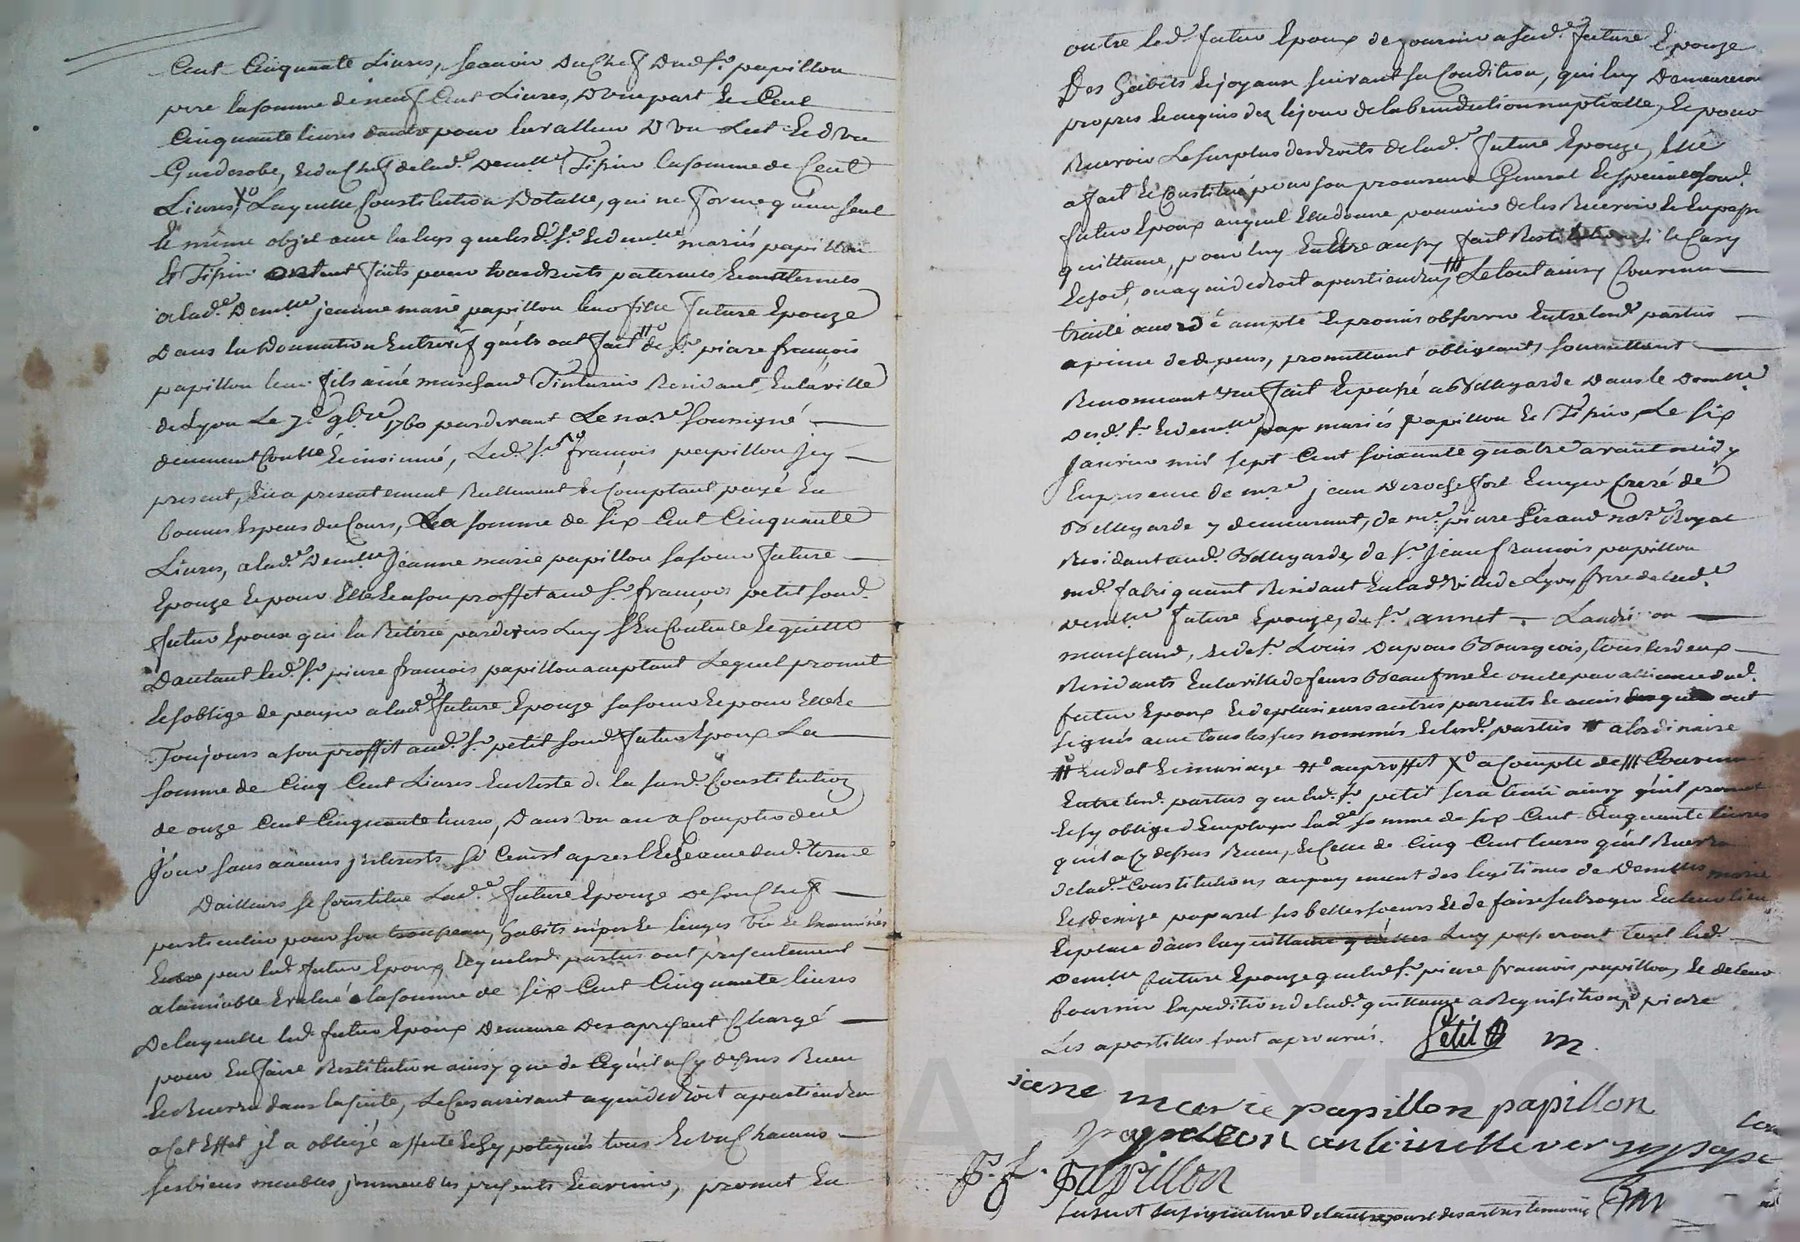 Cent Cinquante Livres, Scavoir Du Chef Dud. Sr. papillon
pere la somme de neuf Cent Livres, D'une part Et Cent
Cinquante livres dautre pour la valleur D'un Lict Et d'une
Garderobe, Et du Chef de lad.e Demlle Tissier la somme de Cent
Livres, Laquelle Constitution Dotalle, qui ne forme qu'un seul
Et même objet avec les que lesd. Sr. Et demlle mariés papillon
Et faits pour tous droits paternels Et maternels
a lad.e Demlle jeanne marie papillon leur fille future Epouze
Dans la Donnation Entrevif quils ont fait de Sr. piere françois
papillon leur fils ainé marchand Teinturier Residant En la ville
de Lyon Le 7.e 9bre 1760 pardevant Le nore. soussigné
deuement Controllé Et insinué, Led. Sr. françois papillon jcy
present, En a presentement Reellement Et Comptant payé En
bonnes Especes du Cours, La somme de six Cent Cinquante
Livres, a lad.e Demlle jeanne marie papillon sa soeur future
Epouze Et pour Elle Et a son proffit aud. Sr. françois petit sond.
futur Epoux qui la Retirée pardevers Luy S'En Contente Et quitte
Dautant led. Sr. piere françois papillon acceptant Lequel promet
Et soblige de payer a lad. future Epouze sa soeur Et pour Elle Et
Toujours a son proffit aud. Sr. petit sond. futur Epoux La
somme de Cinq Cent Livres En Reste de la susd. Constitution
de onze Cent Cinquante livres, Dans un an a Compter de ce
jour sans aucuns jnterests si Cenest apres l'Echeance dud. terme
Dailleurs se Constitue Lad.e future Epouze De son Chef
particulier pour son trousseau, habits nipes Et linges Vu Et Examinés
par led. futur Epoux, Lequel lesd. parties ont presentement
a lamiable Evalué a la somme de Six Cent Cinquante livres
De laquelle led. futur Epoux Demeure Des apresent Chargé
pour En faire Restitution ainsy que de Ce qu'il a Cy dessus Receu
Et Recevra dans la suite, Le Cas arrivant a qui de droit apartiendra
a Cet Effet jl a obligé affecté Et hypotequés tous Et un Chacuns
ses biens meubles jmmeubles presents Et avenir, promet En
outre led. futur Epoux de fournir a sad.e future Epouze
Des habits Et joyaux suivant sa Condition, qui luy Demeureront
propres Et acquis dez le jour de la benediction nuptialle, Et pour
Recevoir Le surplus des droits de lad.e future Epouze, Elle
a fait Et Constitué pour son procureur General Et special sond.
futur Epoux auquel Elle donne pouvoir de les Recevoir Et En passer
quittance, pour luy En Etre aussy fait Restitution si le Cas y
Echoit, ou a qui de droit apartiendra, Le tout ainsy Convenu
traité accordé accepté Et promis observer Entre lesd. parties
a peine de depens, promettant obligeant, soumettant
Renonceant &c fait Et passé a Bellegarde Dans le Domlle
Desd. Sr. Et demlle mariés papillon Et Tissier, Le six
janvier mil sept Cent soixante quatre avant midy
En presence de mre. jean Derochefort Ecuyer Curé de
Bellegarde y demeurant, de me. piere Giraud nore. Royal
Residant aud. Bellegarde, de Sr. jean françois papillon
md. fabriquant Residant En lad. ville de Lyon frere de lad.
Demlle future Epouze, du Sr. annet Landri on
marchand, Et de Sr. Louis Dupons Bourgeois, tous les deux
Residants En la ville de feurs Beaufrere Et oncle par alliance dud.
futur Epoux Et de plusieurs autres parents Et amis qui ont
signés avec tous les sus nommés Et lesd. parties a lordinaire
En dot Et mariage au proffit a Compte de Convenu
Entre lesd. parties que led. Sr. petit sera tenu ainsy qu'il promet
Et sy oblige d'Employer lad.e somme de six Cent Cinquante livres
qu'il a Cy dessus Receu, Et Celle de Cinq Cent livres qu'il Recevra
de lad.e Constitution, au payement des legitimes de Demlles marie
Et denize ses belles soeurs Et de faire subroger En leur lieu
Et place dans la quittance Luy passeront tant lad.
Demlle future Epouze que led. Sr. piere françois papillon, Et de leur
fournir Expedition de lad.e quittance a Requisition, piere
Les apostilles sont aprouvées. Petit m
jane marie papillon papillon
papillon antoinette
P. f. papillon
Suivent la signature de lautre part des autres temoins